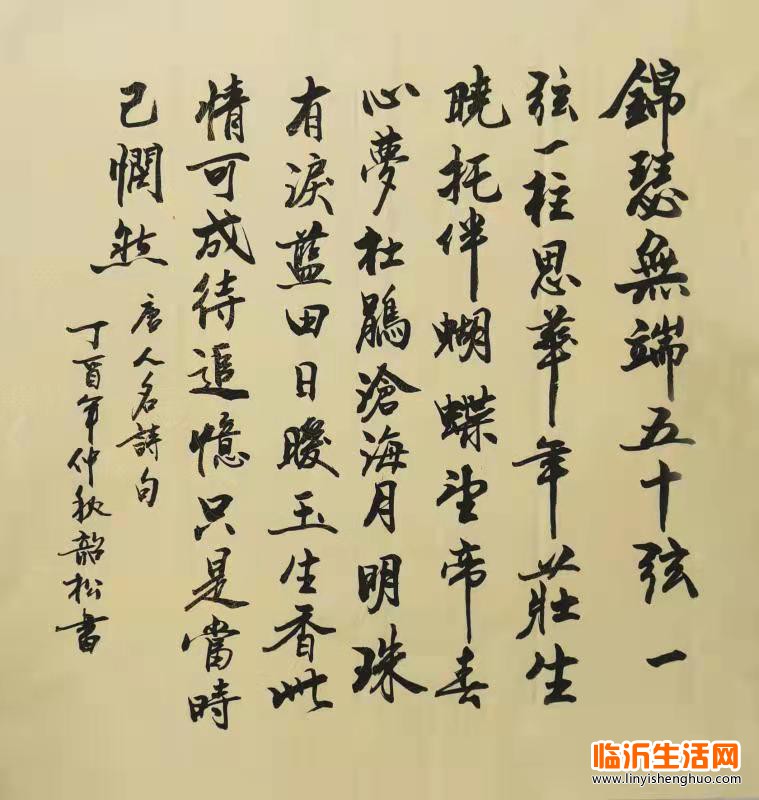 錦瑟無端五十弦一
弦一柱思華年莊生
曉托伴蝴蝶望帝春
心夢杜鵑滄海月明珠
有淚藍田日暖玉生香此
情可成待追憶只是當時
已憫然
唐人名詩句
丁酉年仲秋韶松書
临沂生活网
www.linyishenghuo.com